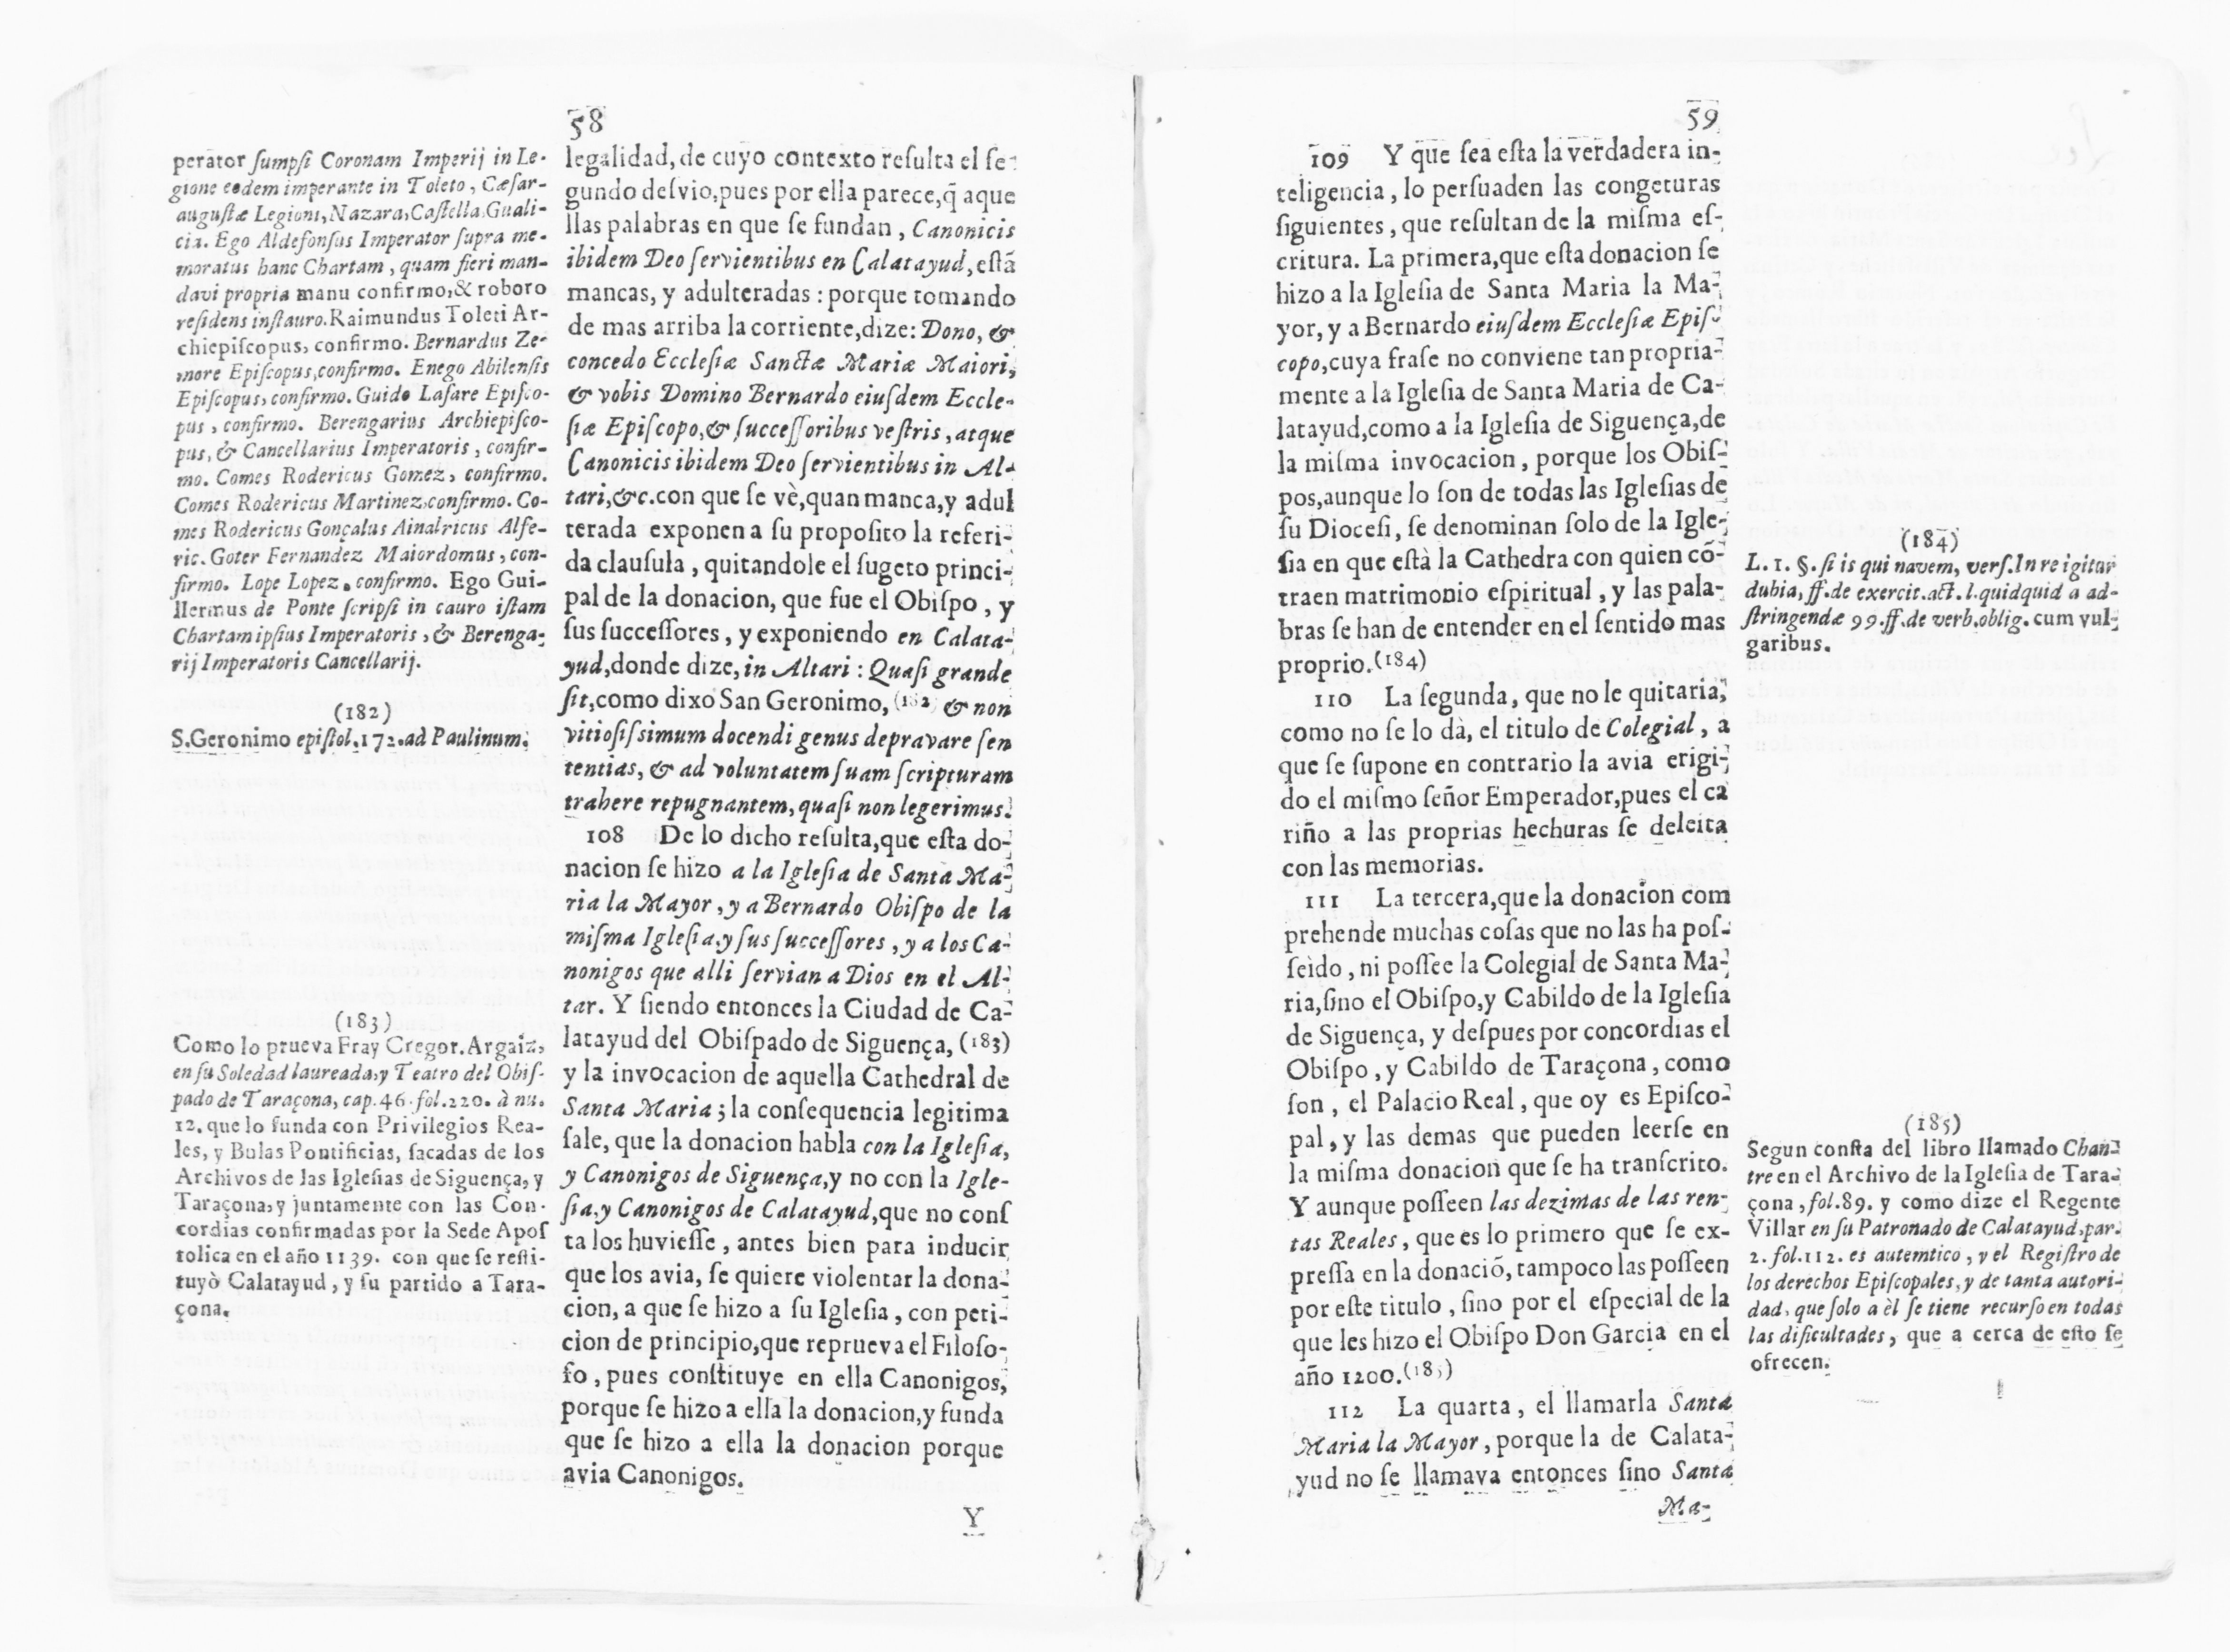 58
perator ſumpſi Coronam Imperij in Le-
gione eodem imperante in Toleto, Cæſar-
auguſtæ Legioni, Nazara, Caſtella, Guali-
cia. Ego Aldefonſus Imperator ſupra me-
moratus hanc Chartam, quam fieri man-
davi propria manu confirmo, & roboro
reſidens inſtauro. Raimundus Toleti Ar-
chiepiſcopus, confirmo. Bernardus Ze-
more Epiſcopus, confirmo. Enego Abilenſis
Epiſcopus, confirmo. Guido Laſare Epiſco-
pus, confirmo. Berengarius Archiepiſco-
pus, & Cancellarius Imperatoris, confir-
mo. Comes Rodericus Gomez, confirmo.
Comes Rodericus Martinez, confirmo. Co-
mes Rodericus Gonçalus Ainalricus Alfe-
ric. Goter Fernandez Maiordomus, con-
firmo. Lope Lopez, confirmo. Ego Gui-
llermus de Ponte ſcripſi in cauro iſtam
Chartam ipſius Imperatoris, & Berenga-
rij Imperatoris Cancellarij.
(182)
S. Geronimo epiſtol. 172. ad Paulinum.
(183)
Como lo prueva Fray Gregor. Argaiz,
en ſu Soledad laureada, y Teatro del Obiſ-
pado de Taraçona, cap. 46. fol. 220. à nu.
12. que lo funda con Privilegios Rea-
les, y Bulas Pontificias, ſacadas de los
Archivos de las Igleſias de Siguença, y
Taraçona, y juntamente con las Con-
cordias confirmadas por la Sede Apoſ
tolica en el año 1139. con que ſe reſti-
tuyò Calatayud, y ſu partido a Tara-
çona.
legalidad, de cuyo contexto reſulta el ſe-
gundo deſvio, pues por ella parece, q̃ aque
llas palabras en que ſe fundan, Canonicis
ibidem Deo ſervientibus en Calatayud, eſtã
mancas, y adulteradas: porque tomando
de mas arriba la corriente, dize: Dono, &
concedo Eccleſiæ Sanctæ Mariæ Maiori,
& vobis Domino Bernardo eiuſdem Eccle-
ſiæ Epiſcopo, & ſucceſſoribus veſtris, atque
Canonicis ibidem Deo ſervientibus in Al-
tari, &c. con que ſe vè, quan manca, y adul
terada exponen a ſu propoſito la referi-
da clauſula, quitandole el ſugeto princi-
pal de la donacion, que fue el Obiſpo, y
ſus ſucceſſores, y exponiendo en Calata-
yud, donde dize, in Altari: Quaſi grande
ſit, como dixo San Geronimo, (182) & non
vitioſiſsimum docendi genus depravare ſen
tentias, & ad voluntatem ſuam ſcripturam
trahere repugnantem, quaſi non legerimus.
108 De lo dicho reſulta, que eſta do-
nacion ſe hizo a la Igleſia de Santa Ma-
ria la Mayor, y a Bernardo Obiſpo de la
miſma Igleſia, y ſus ſucceſſores, y a los Ca-
nonigos que alli ſervian a Dios en el Al-
tar. Y ſiendo entonces la Ciudad de Ca-
latayud del Obiſpado de Siguença, (183)
y la invocacion de aquella Cathedral de
Santa Maria; la conſequencia legitima
ſale, que la donacion habla con la Igleſia,
y Canonigos de Siguença, y no con la Igle-
ſia, y Canonigos de Calatayud, que no conſ
ta los huvieſſe, antes bien para inducir
que los avia, ſe quiere violentar la dona-
cion, a que ſe hizo a ſu Igleſia, con peti-
cion de principio, que reprueva el Filoſo-
fo, pues conſtituye en ella Canonigos,
porque ſe hizo a ella la donacion, y funda
que ſe hizo a ella la donacion porque
avia Canonigos.
Y
59
109 Y que ſea eſta la verdadera in-
teligencia, lo perſuaden las congeturas
ſiguientes, que reſultan de la miſma eſ-
critura. La primera, que eſta donacion ſe
hizo a la Igleſia de Santa Maria la Ma-
yor, y a Bernardo eiuſdem Eccleſiæ Epiſ-
copo, cuya fraſe no conviene tan propria-
mente a la Igleſia de Santa Maria de Ca-
latayud, como a la Igleſia de Siguença, de
la miſma invocacion, porque los Obiſ-
pos, aunque lo ſon de todas las Igleſias de
ſu Dioceſi, ſe denominan ſolo de la Igle-
ſia en que eſtà la Cathedra con quien cõ-
traen matrimonio eſpiritual, y las pala-
bras ſe han de entender en el ſentido mas
proprio. (184)
110 La ſegunda, que no le quitaria,
como no ſe lo dà, el titulo de Colegial, a
que ſe ſupone en contrario la avia erigi-
do el miſmo ſeñor Emperador, pues el ca
riño a las proprias hechuras ſe deleita
con las memorias.
111 La tercera, que la donacion com
prehende muchas coſas que no las ha poſ-
ſeìdo, ni poſſee la Colegial de Santa Ma-
ria, ſino el Obiſpo, y Cabildo de la Igleſia
de Siguença, y deſpues por concordias el
Obiſpo, y Cabildo de Taraçona, como
ſon, el Palacio Real, que oy es Epiſco-
pal, y las demas que pueden leerſe en
la miſma donacion que ſe ha tranſcrito.
Y aunque poſſeen las dezimas de las ren-
tas Reales, que es lo primero que ſe ex-
preſſa en la donació, tampoco las poſſeen
por eſte titulo, ſino por el eſpecial de la
que les hizo el Obiſpo Don Garcia en el
año 1200. (185)
112 La quarta, el llamarla Santa
Maria la Mayor, porque la de Calata-
yud no ſe llamava entonces ſino Santa
Ma-
(184)
L. 1. §. ſi is qui navem, verſ. In re igitur
dubia, ff. de exercit. act. l. quidquid a ad-
ſtringendæ 99. ff. de verb. oblig. cum vul-
garibus.
(185)
Segun conſta del libro llamado Chan-
tre en el Archivo de la Igleſia de Tara-
çona, fol. 89. y como dize el Regente
Villar en ſu Patronado de Calatayud, par.
2. fol. 112. es autemtico, y el Regiſtro de
los derechos Epiſcopales, y de tanta autori-
dad, que ſolo a èl ſe tiene recurſo en todas
las dificultades, que a cerca de eſto ſe
ofrecen.